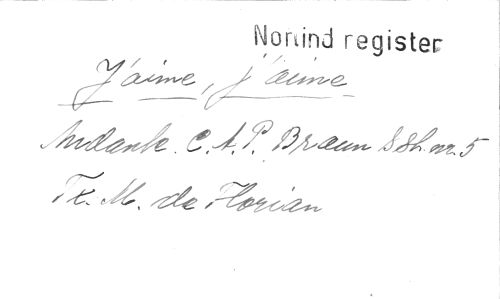 Norlind register
J'aime, j'aime
Andante. C. A. P. Braun S Sh. nr. 5
Tx. M. de Florian